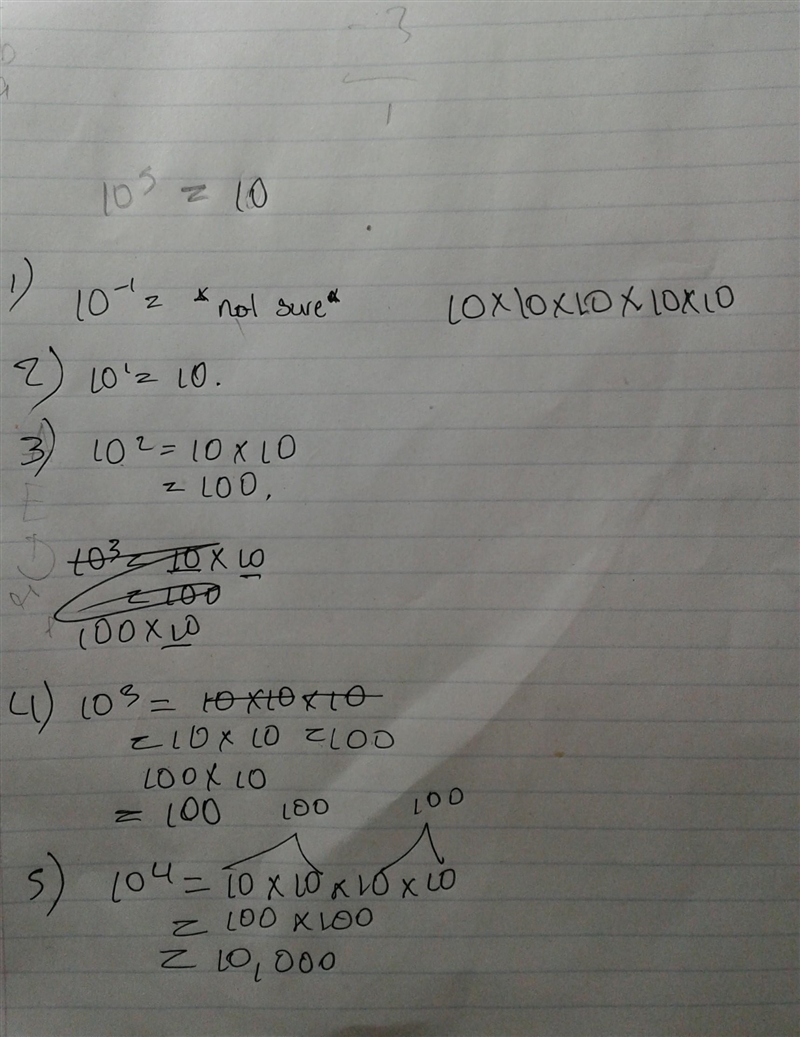 - 3
1
10⁵ = 10
1) 10⁻¹ = *not sure* 10×10×10×10×10
2) 10¹ = 10.
3) 10² = 10 × 10
= 100.
10³ = 10 × 10
= 100
100 × 10
4) 10³ = 10 × 10 × 10
= 10 × 10 = 100
100 × 10
= 100 100 100
5) 10⁴ = 10 × 10 × 10 × 10
= 100 × 100
= 10,000